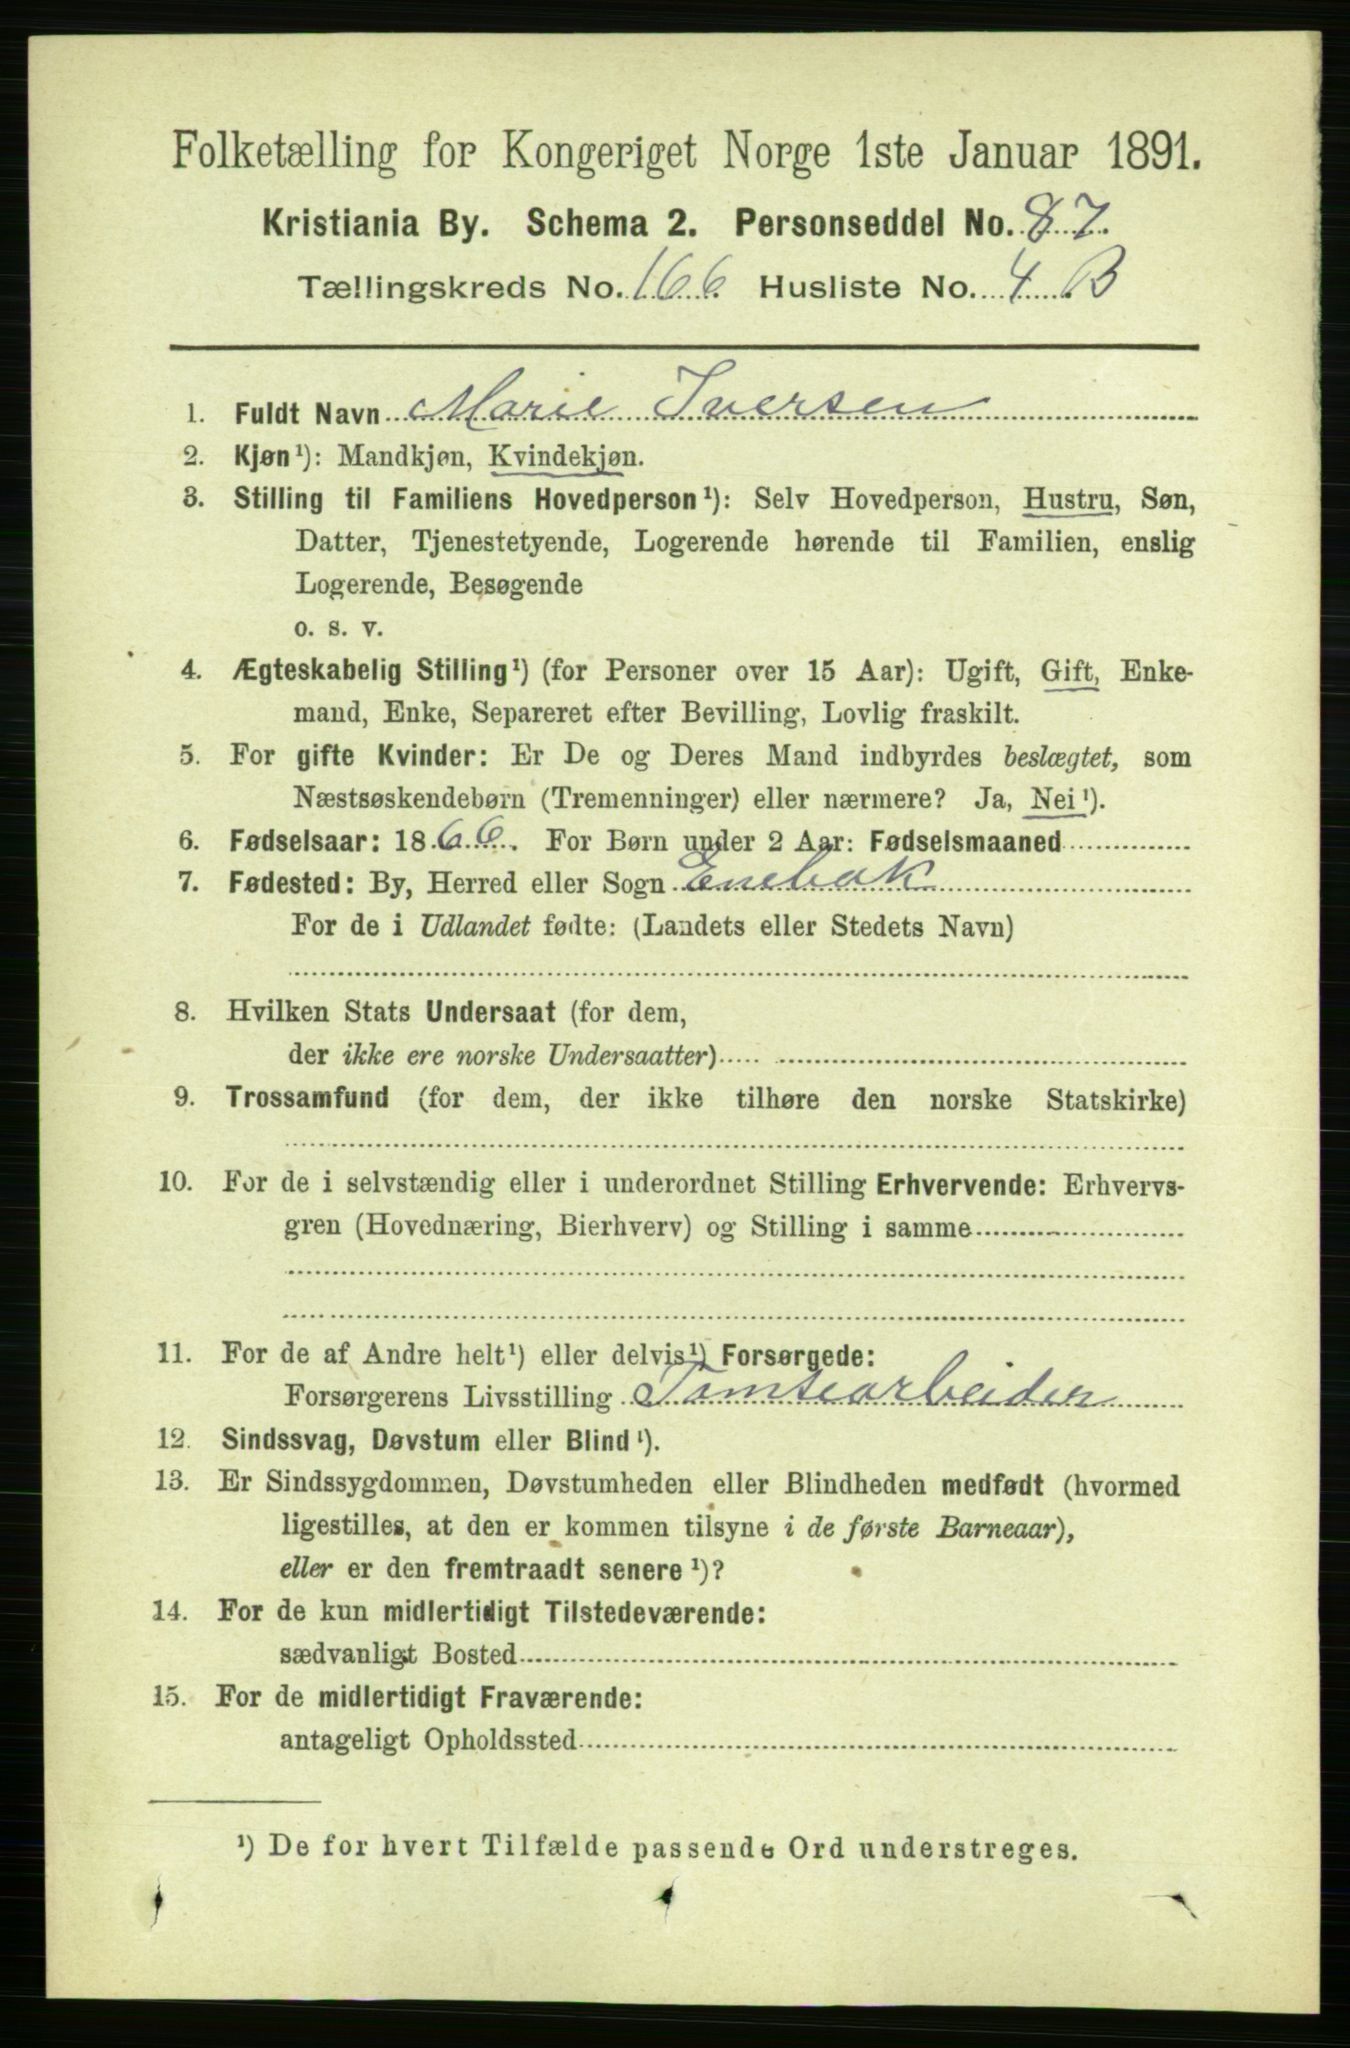 Folketælling for Kongeriget Norge 1ste Januar 1891.
Kristiania By. Schema 2. Personseddel No. 87
Tællingskreds No. 166 Husliste No. 4 B
1. Fuldt Navn Marie Iversen
2. Kjøn¹): Mandkjøn, Kvindekjøn.
3. Stilling til Familiens Hovedperson¹): Selv Hovedperson, Hustru, Søn,
Datter, Tjenestetyende, Logerende hørende til Familien, enslig
Logerende, Besøgende
o. s. v.
4. Ægteskabelig Stilling¹) (for Personer over 15 Aar): Ugift, Gift, Enke-
mand, Enke, Separeret efter Bevilling, Lovlig fraskilt.
5. For gifte Kvinder: Er De og Deres Mand indbyrdes beslægtet, som
Næstsøskendebørn (Tremenninger) eller nærmere? Ja, Nei¹).
6. Fødselsaar: 1866. For Børn under 2 Aar: Fødselsmaaned
7. Fødested: By, Herred eller Sogn Enebak
For de i Udlandet fødte: (Landets eller Stedets Navn)
8. Hvilken Stats Undersaat (for dem,
der ikke ere norske Undersaatter)
9. Trossamfund (for dem, der ikke tilhøre den norske Statskirke)
10. For de i selvstændig eller i underordnet Stilling Erhvervende: Erhvervs-
gren (Hovednæring, Bierhverv) og Stilling i samme
11. For de af Andre helt¹) eller delvis¹) Forsørgede:
Forsørgerens Livsstilling Tomtearbeider
12. Sindssvag, Døvstum eller Blind¹).
13. Er Sindssygdommen, Døvstumheden eller Blindheden medfødt (hvormed
ligestilles, at den er kommen tilsyne i de første Barneaar),
eller er den fremtraadt senere¹)?
14. For de kun midlertidigt Tilstedeværende:
sædvanligt Bosted
15. For de midlertidigt Fraværende:
antageligt Opholdssted
¹) De for hvert Tilfælde passende Ord understreges.